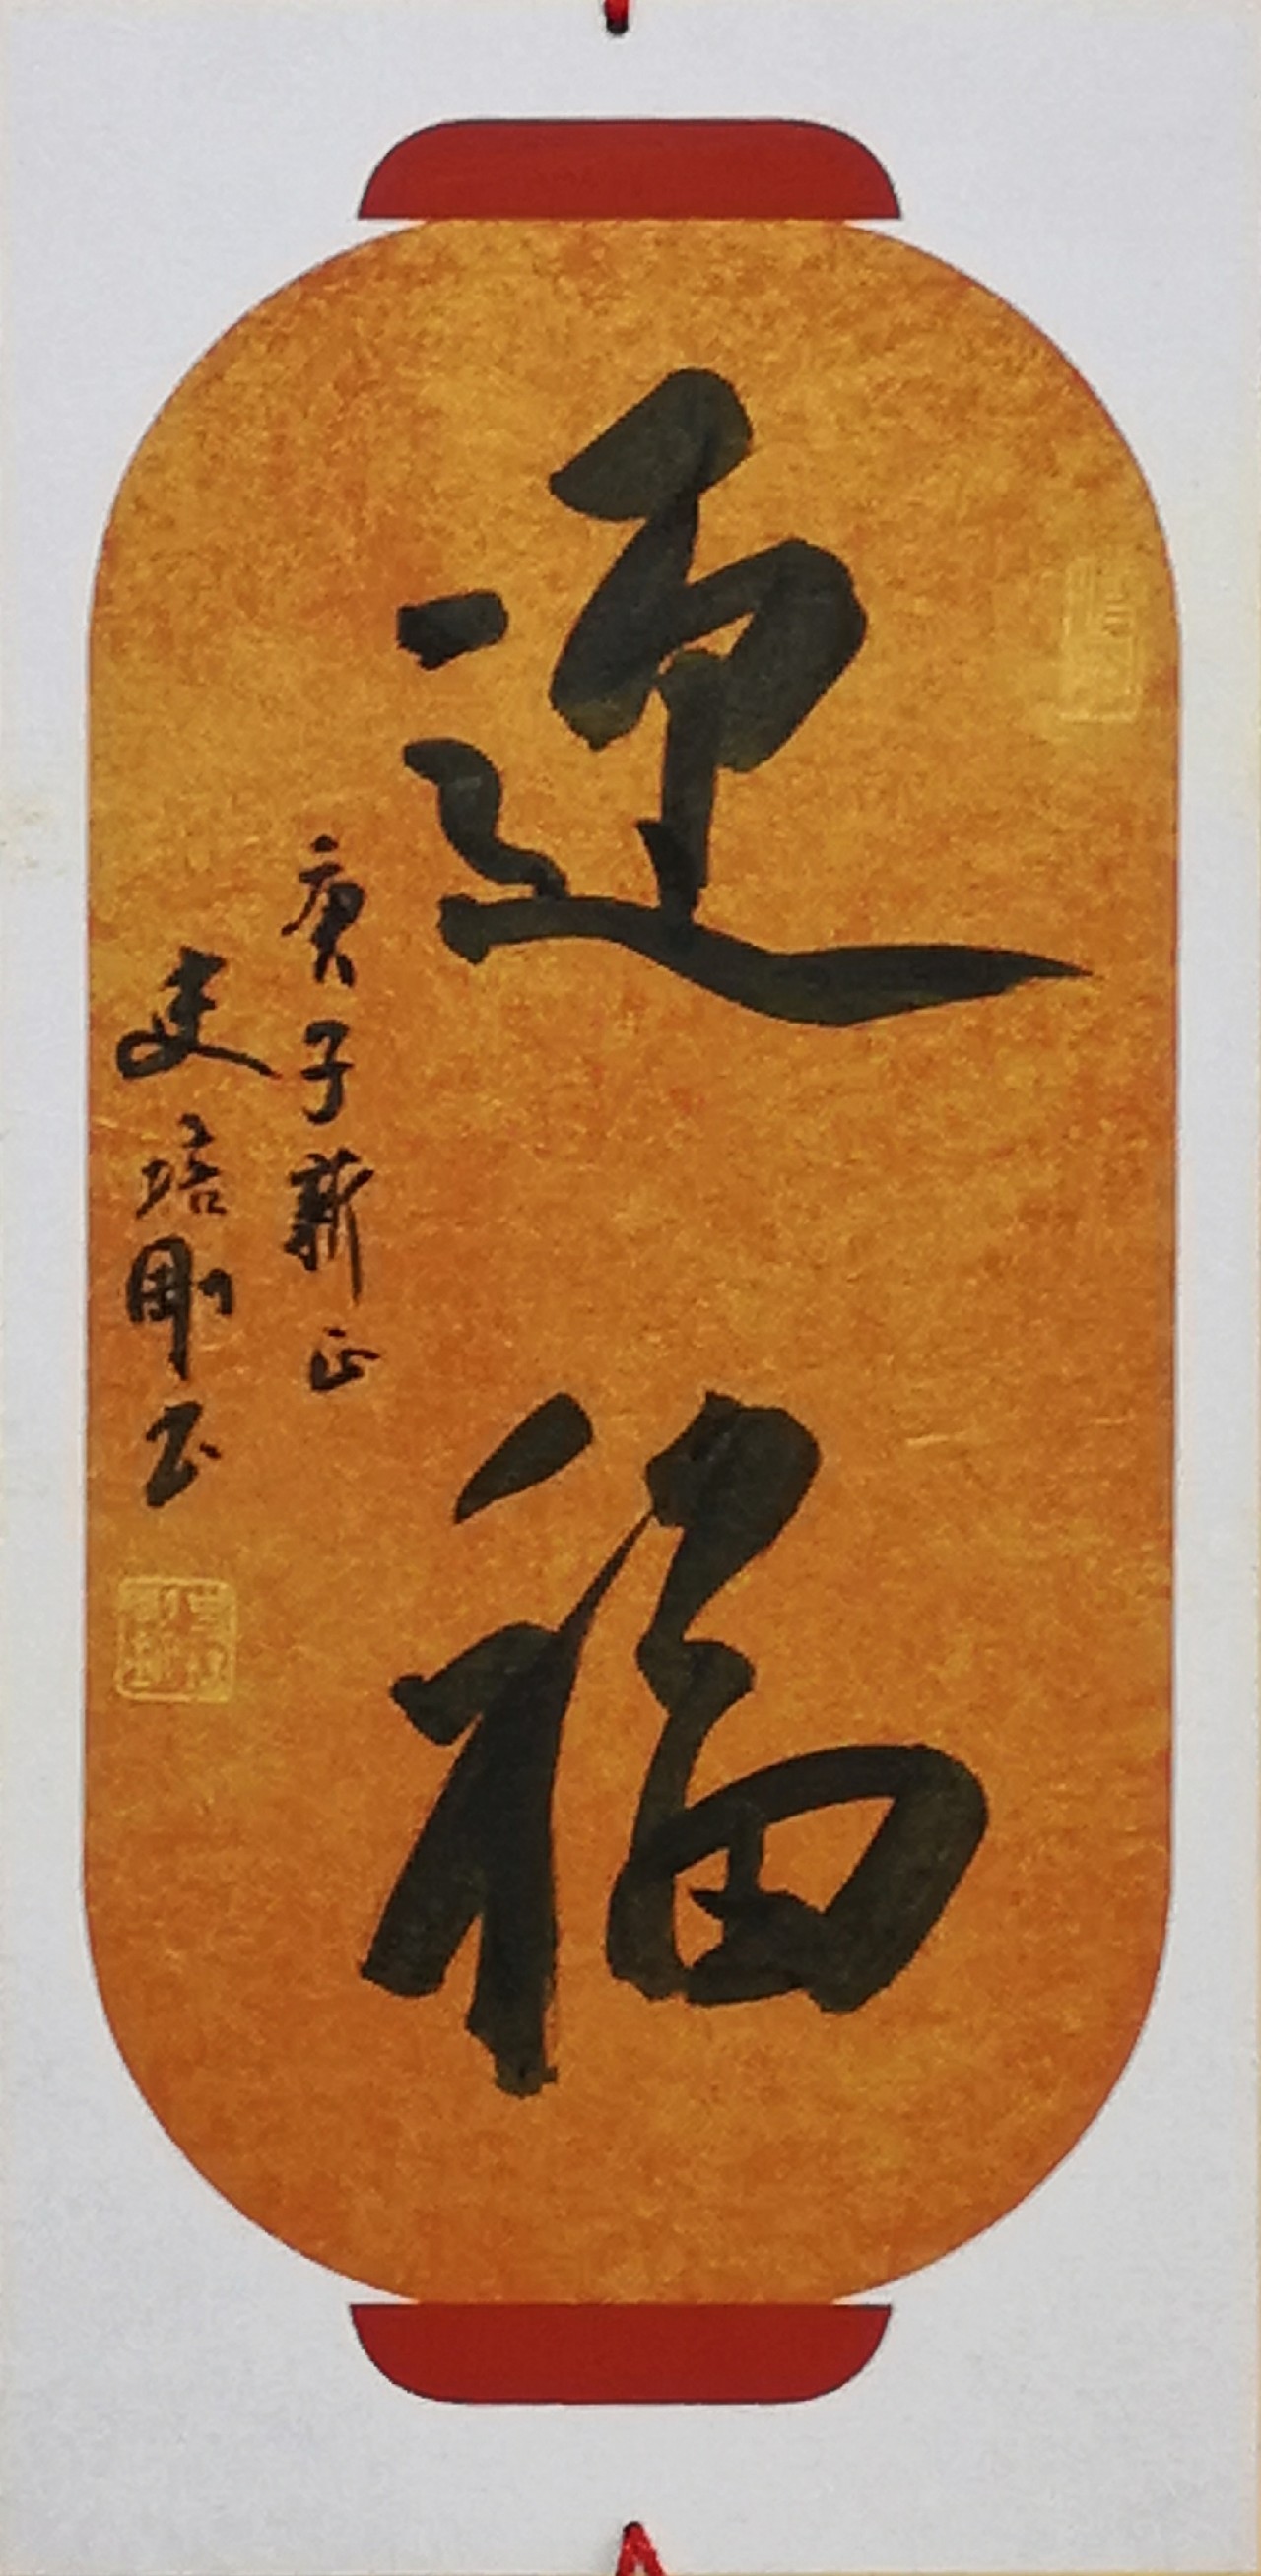 迎
福
庚子新正
吏培剛书